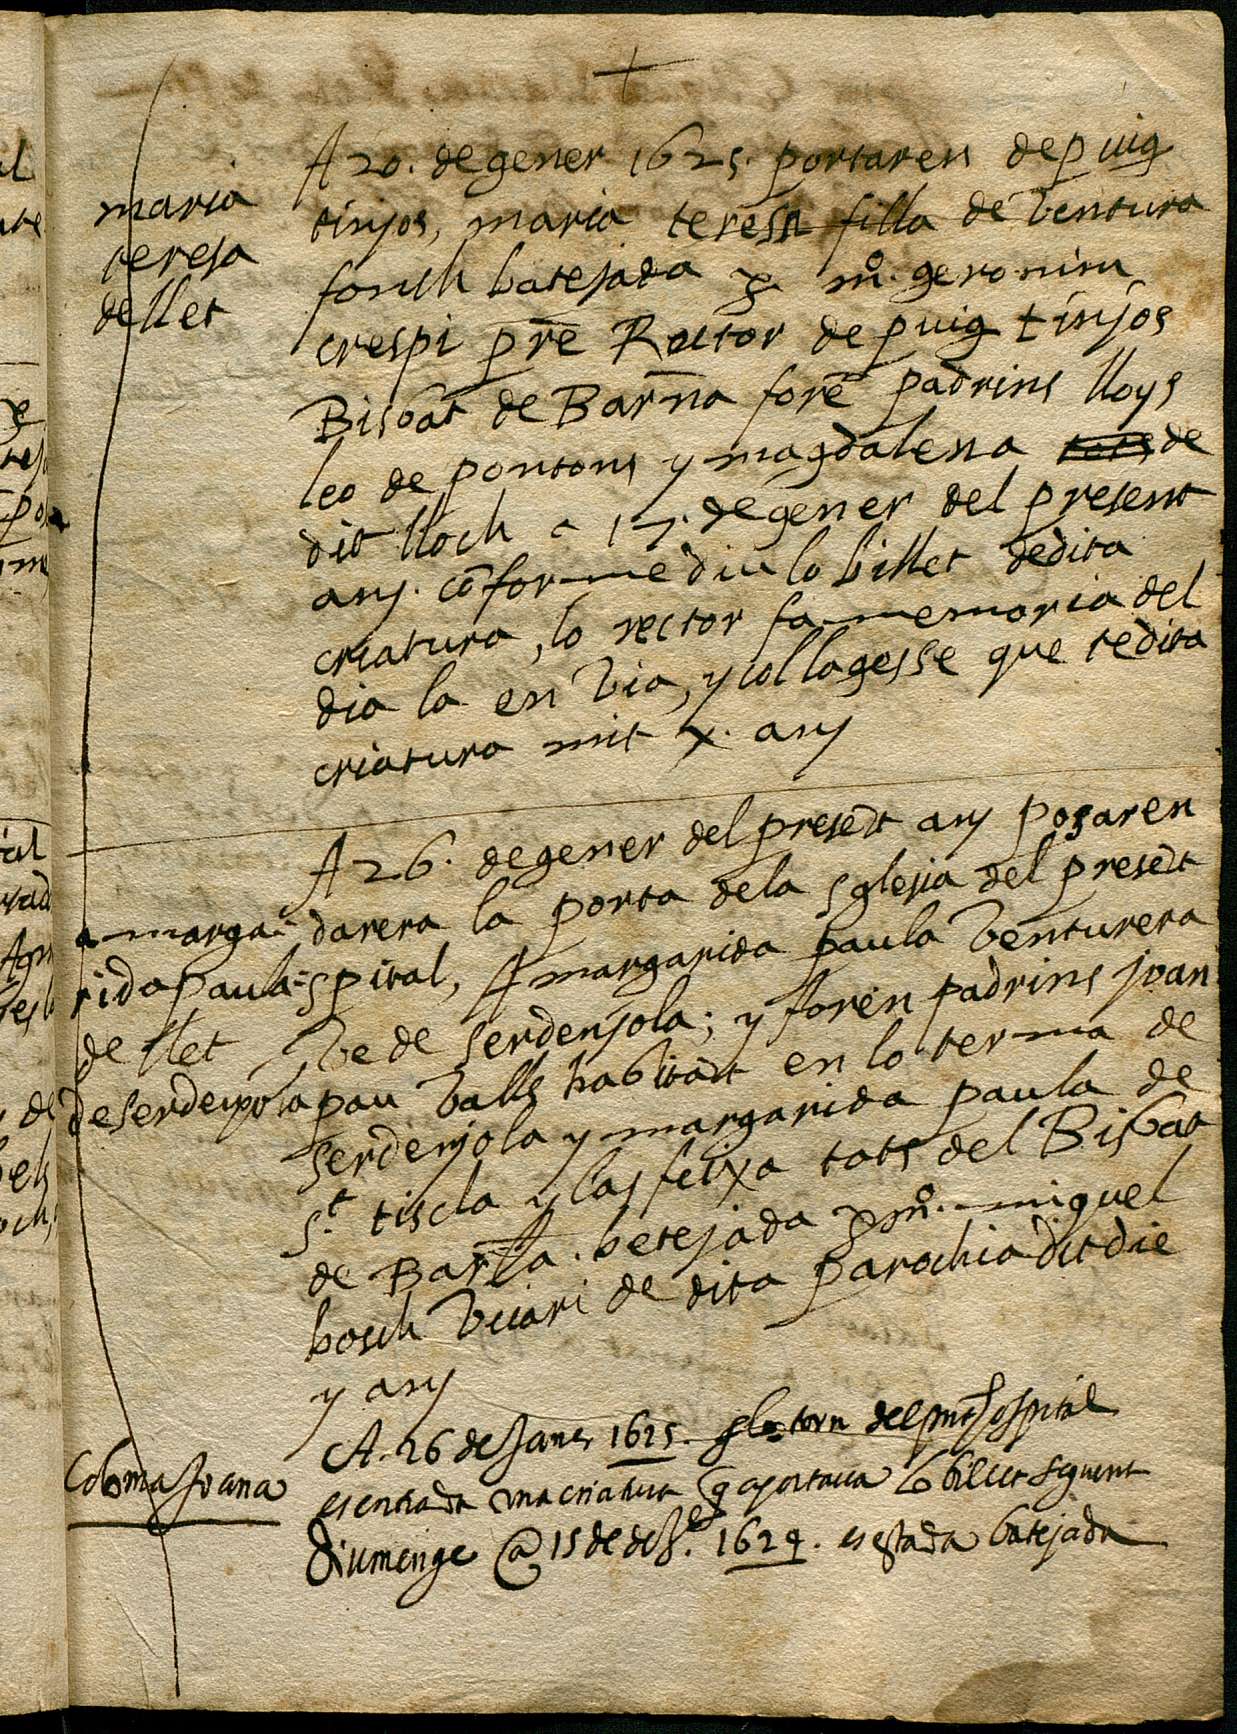 maria
teresa
de llet
A 20. de gener 1625. portaren de puig
tinyos, maria teresa filla de Ventura
fonch batejada p. mº. geronim
crespi pre Rector de puig tinyos
Bisbat de Barna forē padrins lloys
leo de pontons y magdalena de
dit lloch a 17. de gener del present
any. cōforme diu lo billet de dita
criatura, lo rector fa memoria del
dia la en via, y collagesse que te dita
criatura mit x. any
A 26. de gener del presēt any posaren
darera la porta de la sglesia del presēt
spital, A margarida paula Venturera
Ve de Serdenyola; y foren padrins juan
pau Valls habitāt en lo terma de
serdenyola y margarida paula de
St. tiscla y las feixa tots del Bisbat
de Barna. betejada p mº. miquel
bosch Vicari de dita parochia dit die
y any
a marga-
rida paula
de llet
de serdenyola
Coloma Juana
A. 26 de Janer 1625. p lo torn del pnt hospital
es entrada una criatura q aportava lo billet seguent
Diumenge @ 15 de dez.e 1624. es estada batejada